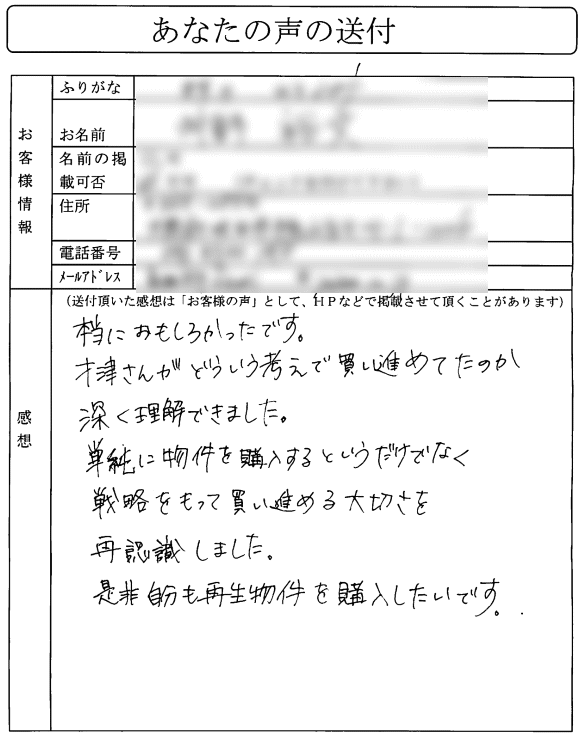 あなたの声の送付
お客様情報
ふりがな
お名前
名前の掲
載可否
住所
電話番号
ﾒｰﾙｱﾄﾞﾚｽ
感想
(送付頂いた感想は「お客様の声」として、HPなどで掲載させて頂くことがあります)
本当におもしろかったです。
才津さんがどういう考えで買い進めてたのか
深く理解できました。
単純に物件を購入するというだけでなく
戦略をもって買い進める大切さを
再認識しました。
是非自分も再生物件を購入したいです。